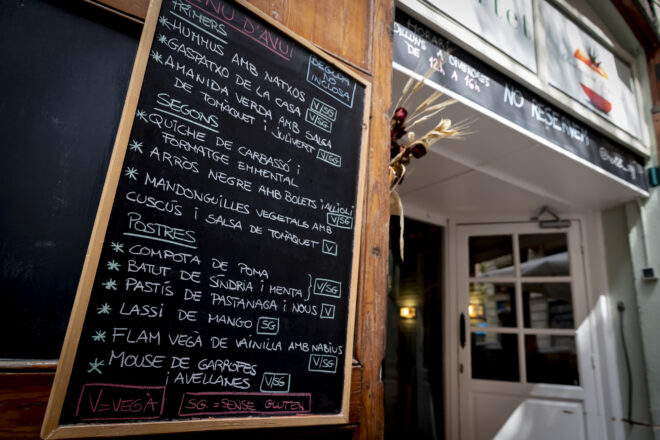 MENU D'AVUI
PRIMERS
* HUMMUS AMB NATXOS
* GASPATXO DE LA CASA V/SG
* AMANIDA VERDA AMB SALSA V/SG
DE TOMÀQUET I JULIVERT V/SG
BEGUDA
NO
INCLOSA
SEGONS
* QUICHE DE CARBASSÓ I
FORMATGE EMMENTAL
* ARRÒS NEGRE AMB BOLETS I ALLIOLI V/SG
* MANDONGUILLES VEGETALS AMB
CUSCÚS I SALSA DE TOMÀQUET V
POSTRES
* COMPOTA DE POMA
* BATUT DE SÍNDRIA I MENTA } V/SG
* PASTÍS DE PASTANAGA I NOUS V
* LASSI DE MANGO SG
* FLAM VEGÀ DE VAINILLA AMB NABIUS V/SG
* MOUSE DE GARROFES
I AVELLANES V/SG
V=VEGÀ
SG=SENSE GLUTEN
HORARI
DILLUNS A DIVENDRES
DE 12H A 16H
NO RESERVEM